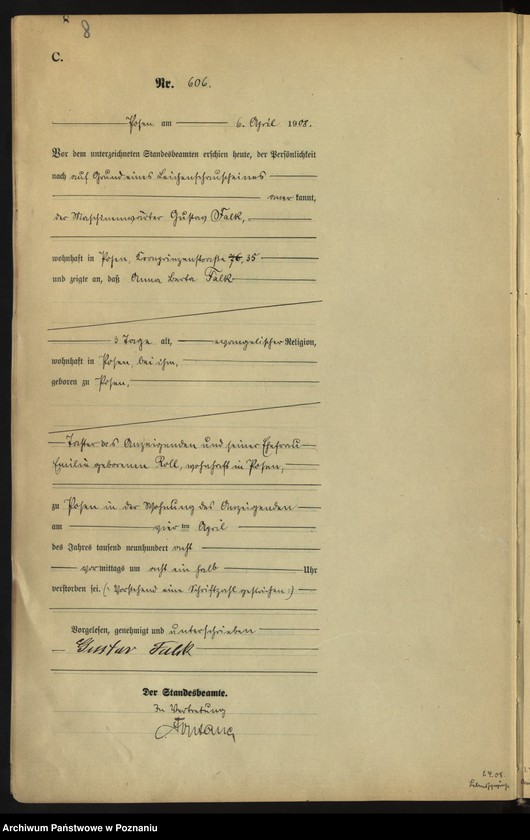 8
C.
Nr. 606.
Posen am 6. April 1908.
Vor dem unterzeichneten Standesbeamten erschien heute, der Persönlichkeit
nach auf Grund eines Leichenschauscheines
anerkannt,
der Maschinenwärter Gustav Falk,
wohnhaft in Posen, Kronprinzenstraße 76, 35
und zeigte an, daß Anna Berta Falk
3 Tage alt, evangelischer Religion,
wohnhaft in Posen, bei ihm,
geboren zu Posen,
Tochter des Anzeigenden und seiner Ehefrau
Emilie geborenen Roll, wohnhaft in Posen,
zu Posen in der Wohnung des Anzeigenden
am vierten April
des Jahres tausend neunhundert acht
vormittags um acht ein halb Uhr
verstorben sei. (: Vorstehend eine Schriftzahl gestrichen :)
Vorgelesen, genehmigt und unterschrieben
Gustav Falk
Der Standesbeamte.
In Vertretung
Fontane
2.4.08.
Archiwum Państwowe w Poznaniu